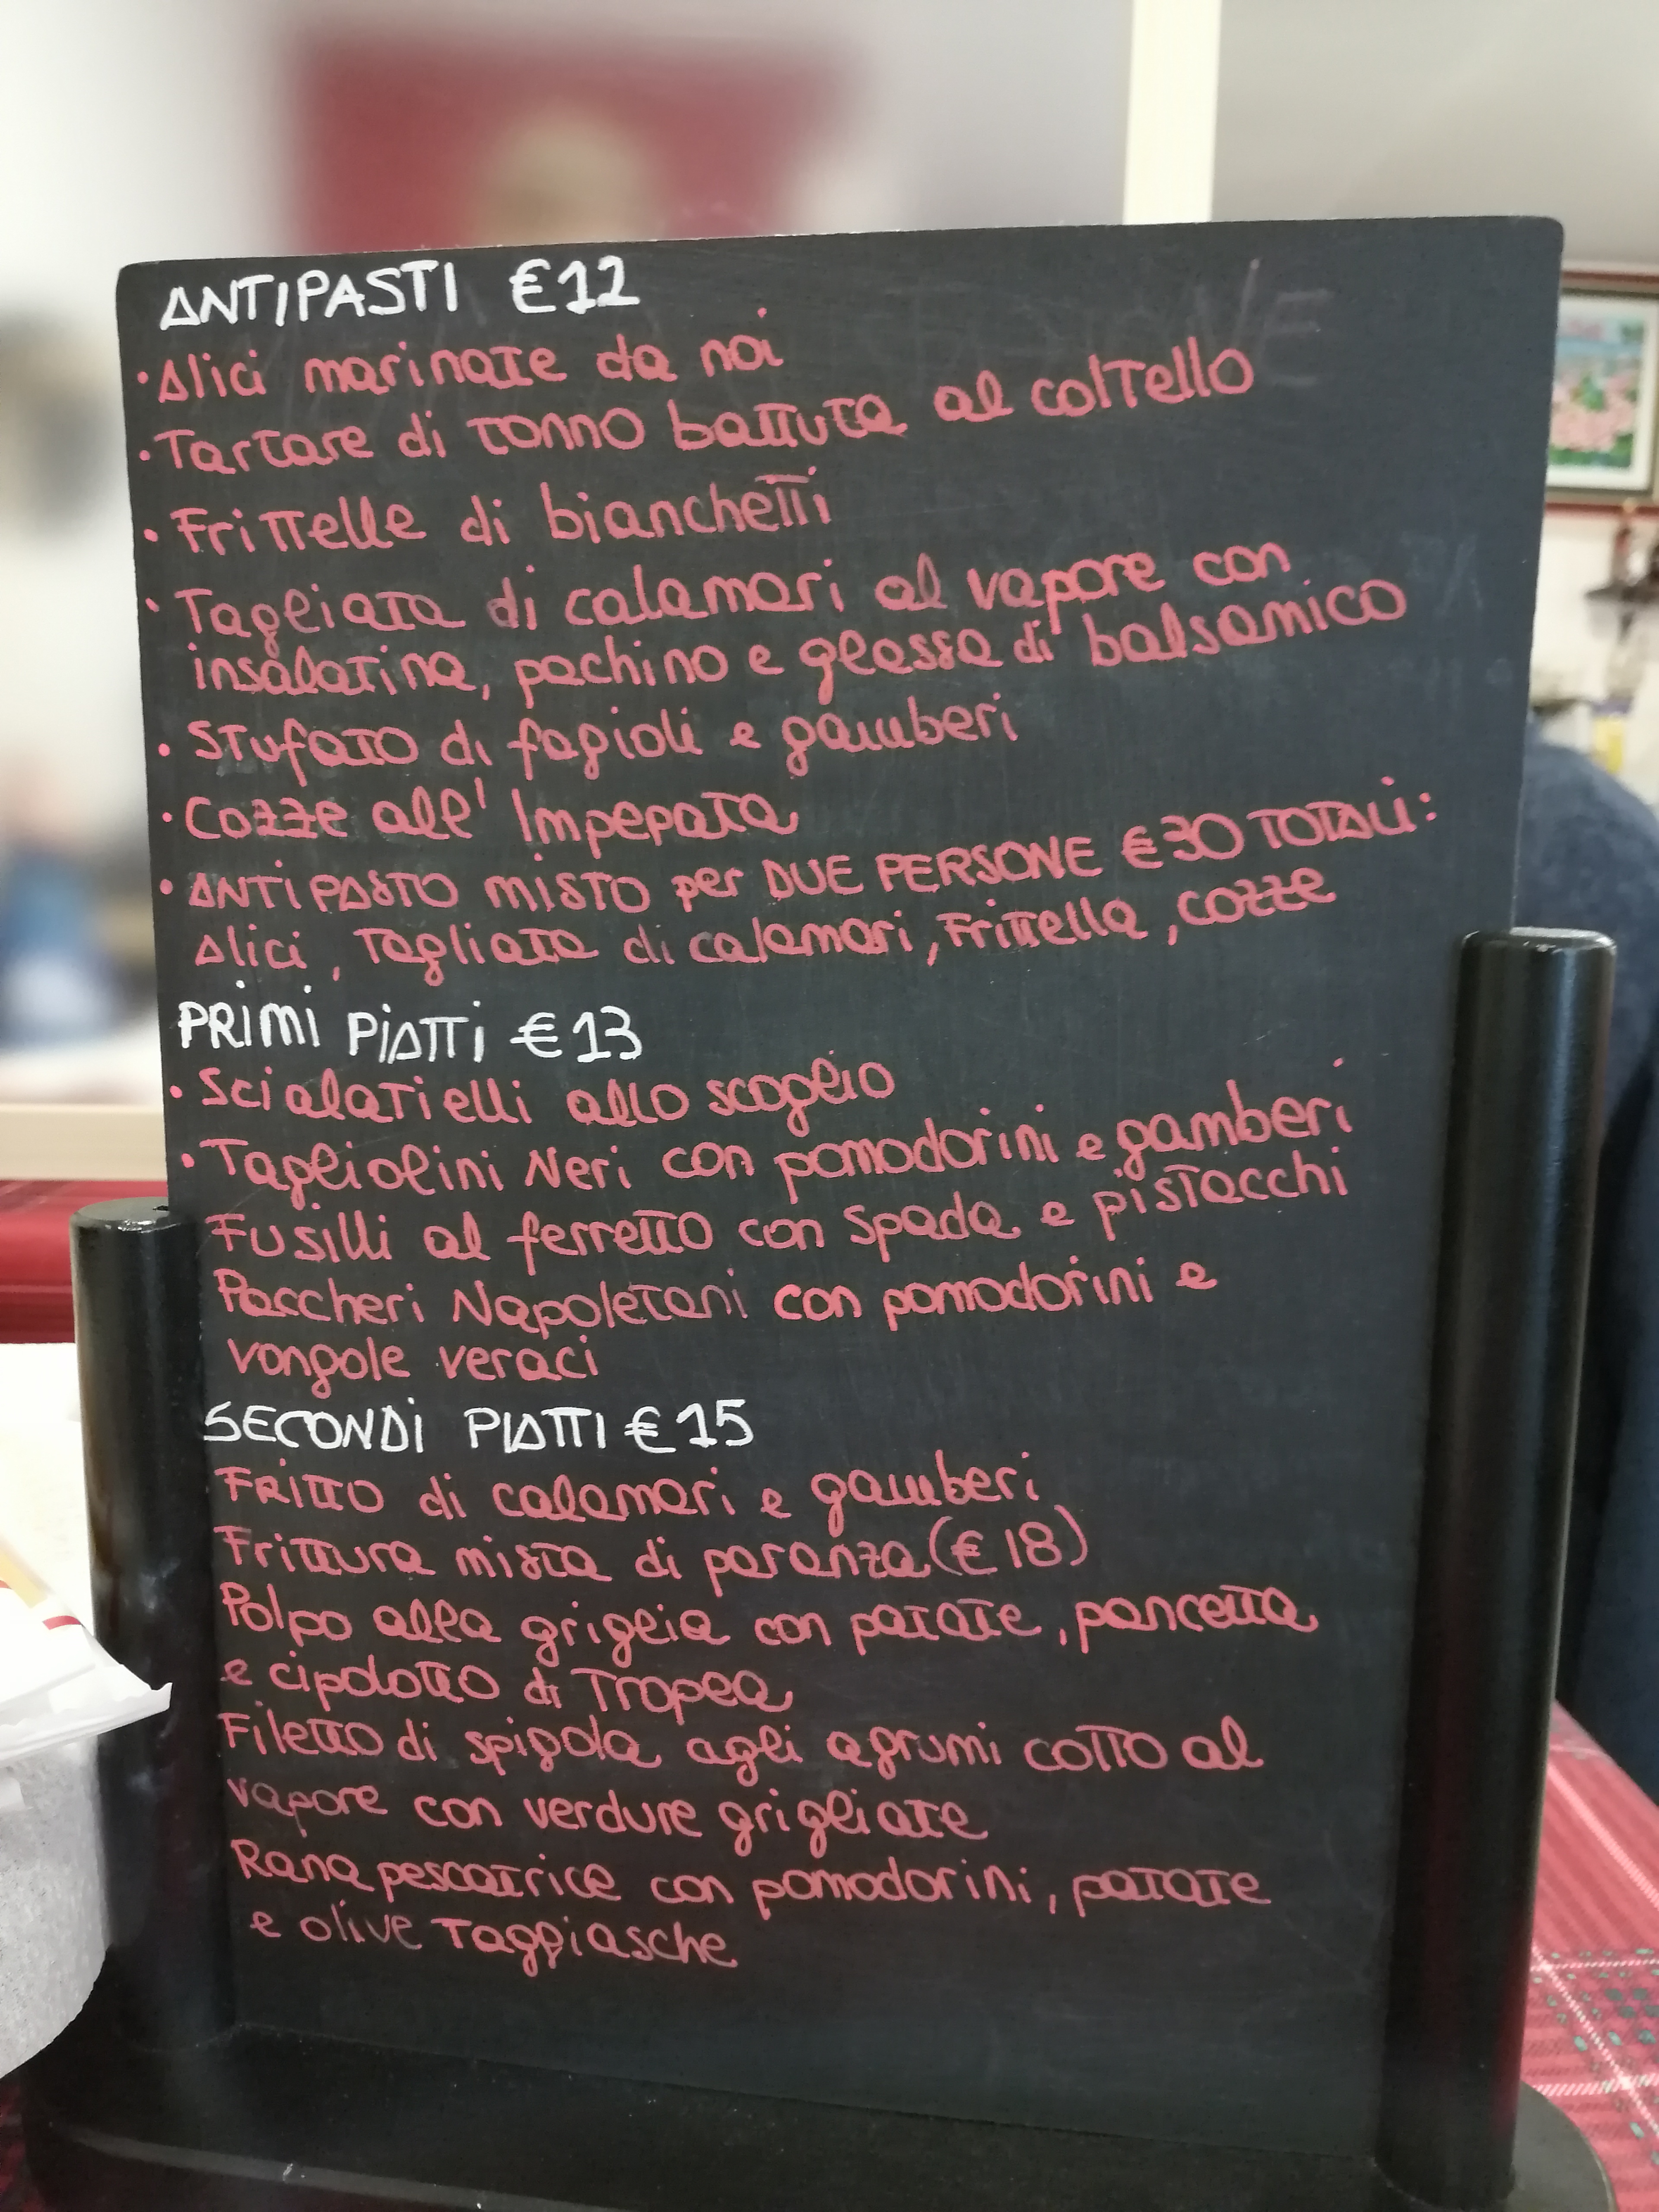 ANTIPASTI €12
• Alici marinate da noi
• Tartare di tonno battuta al coltello
• Frittelle di bianchetti
• Tagliata di calamari al vapore con
insalatina, pachino e glassa di balsamico
• Stufato di fagioli e gamberi
• Cozze all' Impepata
• ANTIPASTO MISTO per DUE PERSONE €30 TOTALI:
Alici, Tagliata di calamari, Frittella, cozze
PRIMI PIATTI €13
• Scialatielli allo scoglio
• Tagliolini Neri con pomodorini e gamberi
Fusilli al ferretto con Spada e pistacchi
Paccheri Napoletani con pomodorini e
vongole veraci
SECONDI PIATTI €15
Fritto di calamari e gamberi
Frittura mista di paranza (€18)
Polpo alla griglia con patate, pancetta
e cipolotto di Tropea
Filetto di spigola agli agrumi cotto al
vapore con verdure grigliate
Rana pescatrice con pomodorini, patate
e olive Taggiasche